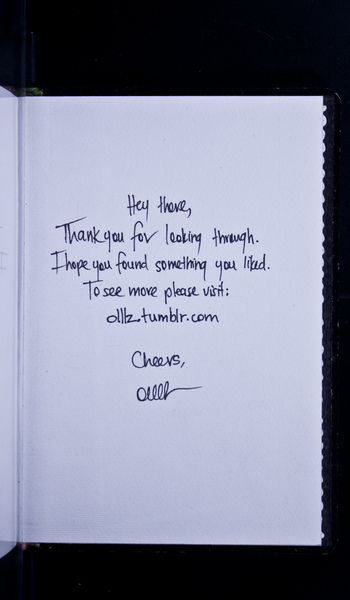 Hey there,
Thank you for looking through.
I hope you found something you liked.
To see more please visit:
olllz.tumblr.com
Cheers,